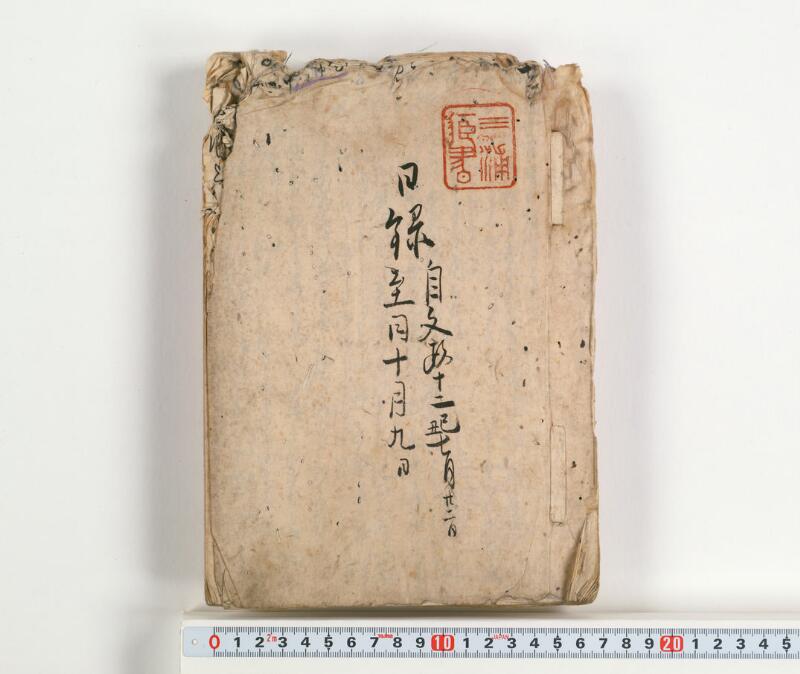 三浦
日録
自文政十二己丑七月廿二日
至同十月九日
0 1 2 2m 3 4 5 6 7 8 9 10 1 2 JAPAN 3 4 5 6 7 8 9 20 1 2 3 4 5